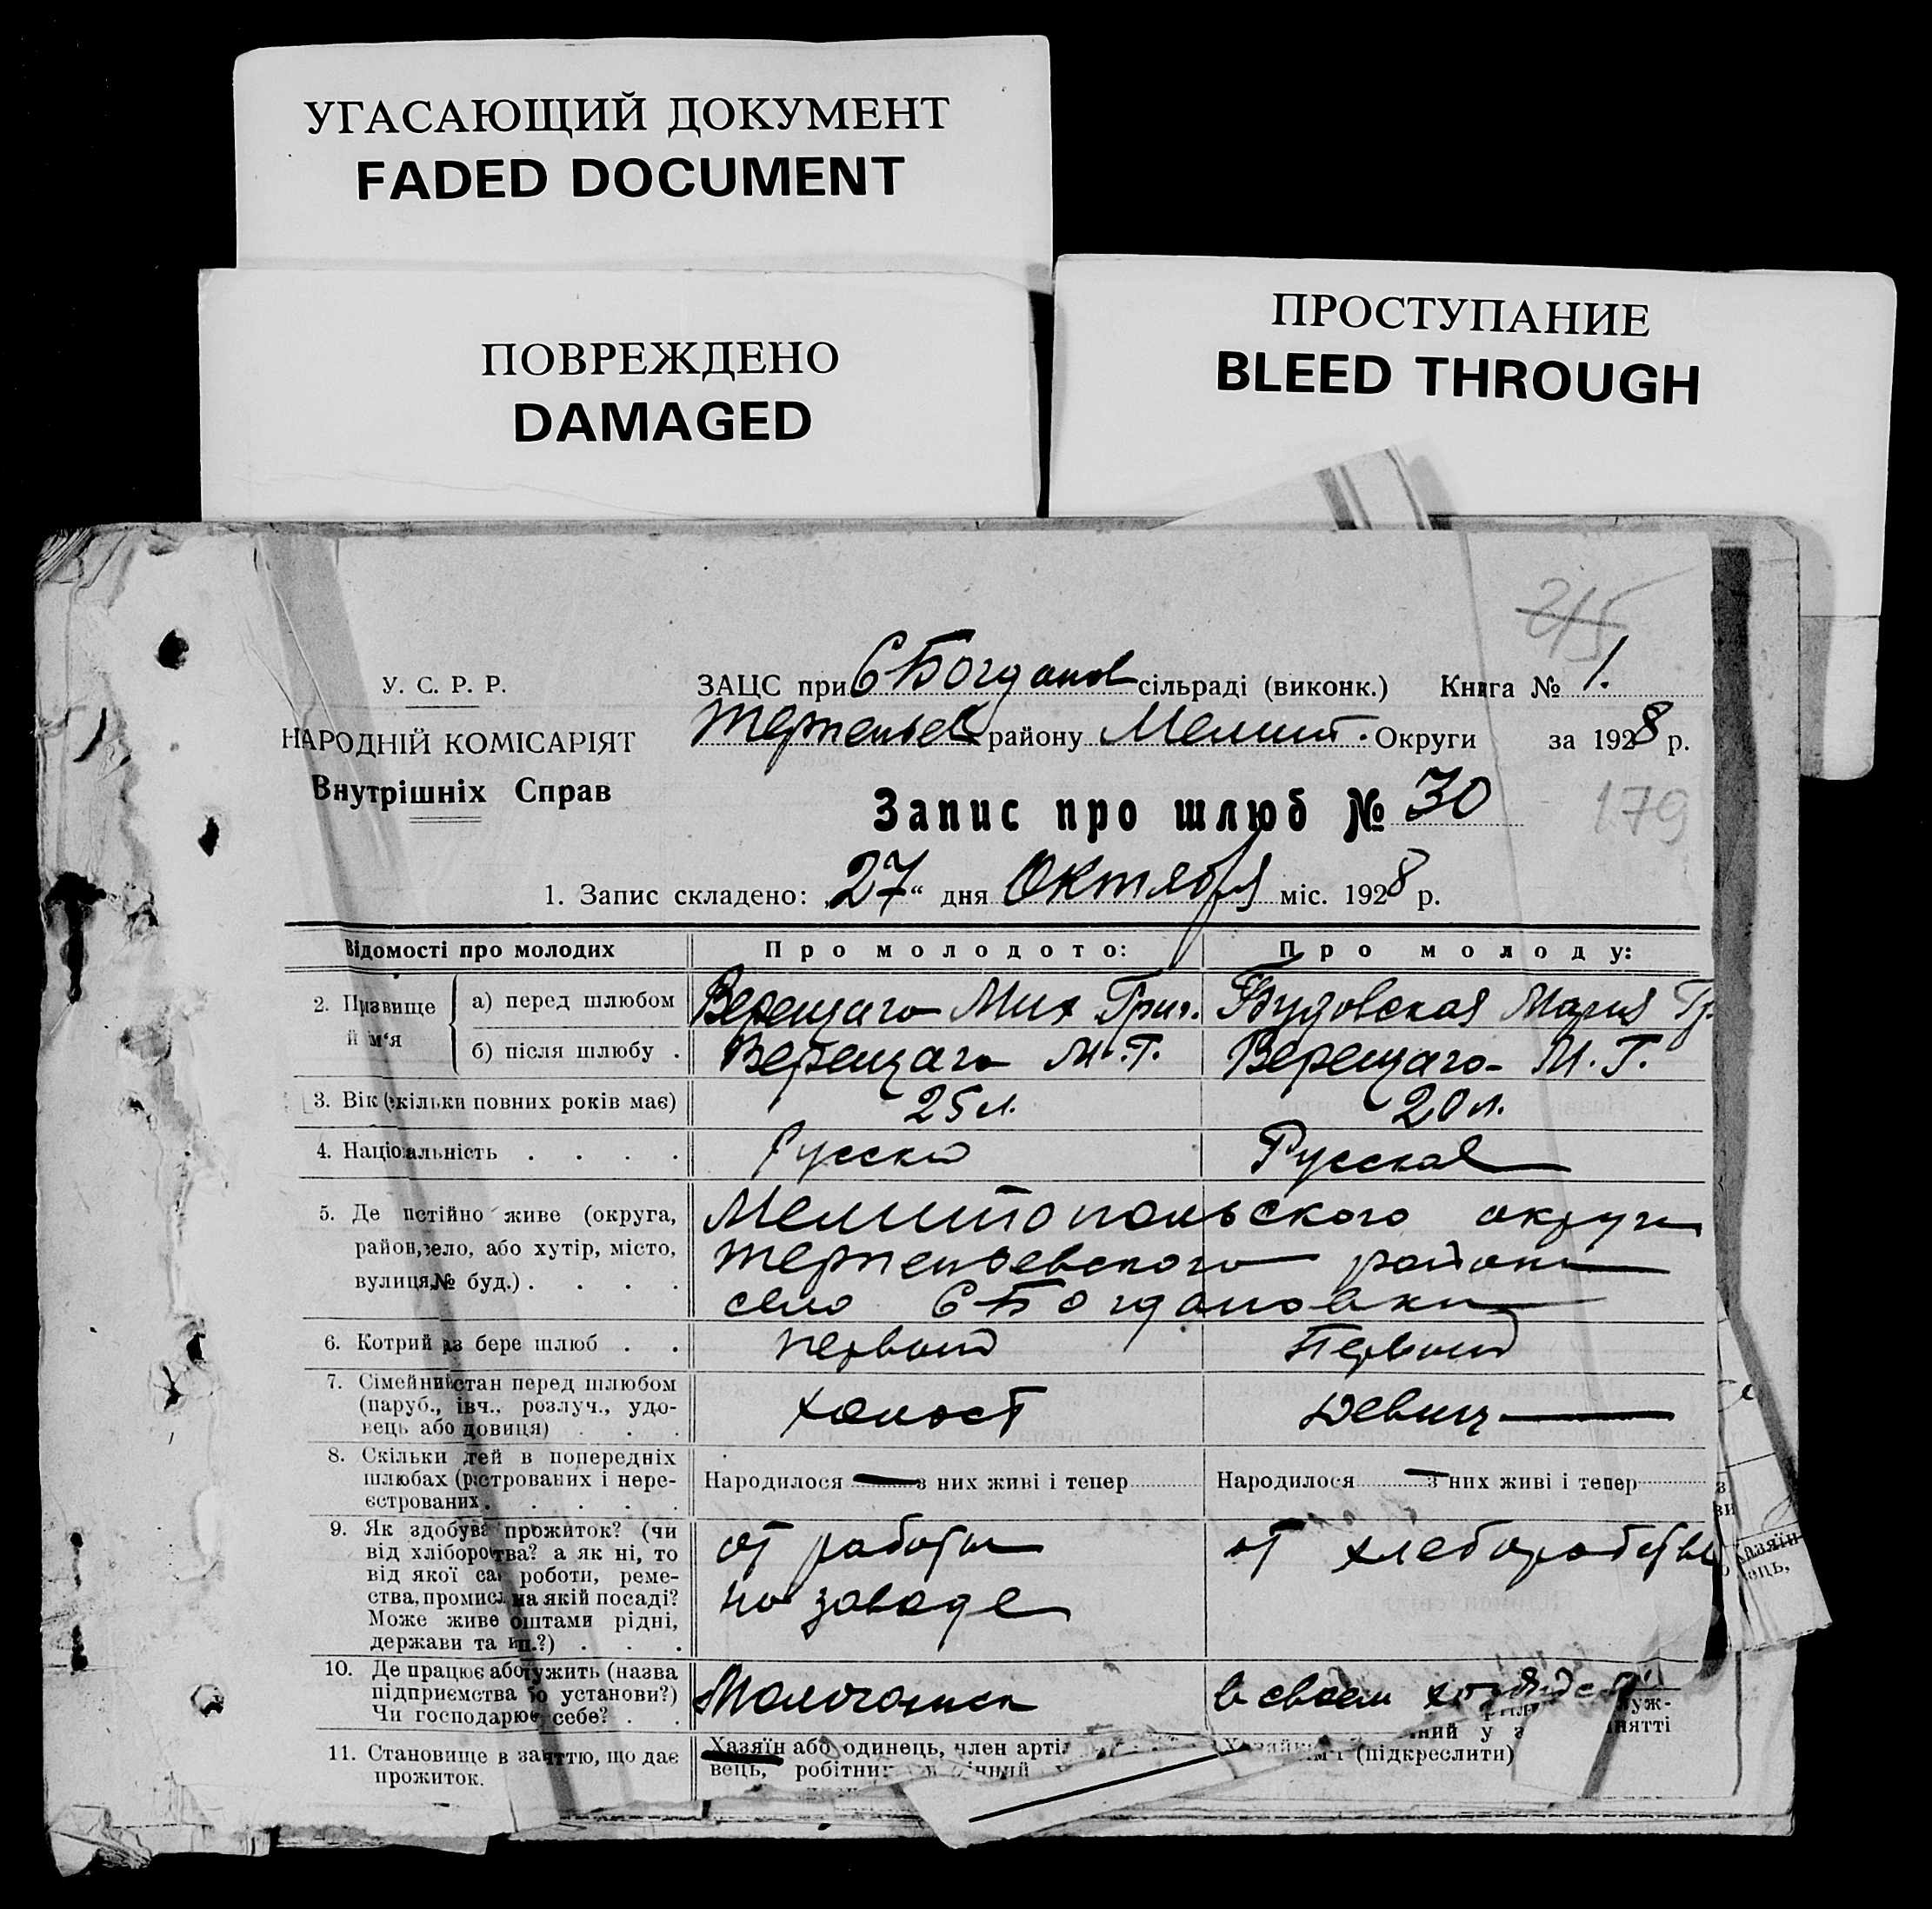 УГАСАЮЩИЙ ДОКУМЕНТ
FADED DOCUMENT
ПОВРЕЖДЕНО
DAMAGED
ПРОСТУПАНИЕ
BLEED THROUGH
215
У. С. Р. Р.
НАРОДНІЙ КОМІСАРІЯТ
Внутрішніх Справ
ЗАЦС при С Богданов сільраді (виконк.) Книга № 1.
Терпеньев району Мелит. Округи за 1928 р.
Запис про шлюб № 30
179
1. Запис складено: „27“ дня Октября міс. 1928 р.
Відомості про молодих Про молодого: Про молоду:
2. Прізвище й ім‘я а) перед шлюбом Верещаго Мих Григ. Будовская Мария Гр.
б) після шлюбу . Верещаго М.Г. Верещаго- М.Г.
3. Вік (скільки повних років має) 25 л. 20 л.
4. Національність . . . . Русский Русская
5. Де постійно живе (округа, Мелитопольского округа
район, село, або хутір, місто, Терпеньевского района
вулиця, № буд.) . . . . село С Богдановки
6. Котрий раз бере шлюб . . первый Первый
7. Сімейний стан перед шлюбом
(паруб., дівч., розлуч., удо- холост Девиц
вець або вдовиця) . . .
8. Скільки дітей в попередніх
шлюбах (реєстрованих і нере- Народилося — з них живі і тепер Народилося — з них живі і тепер
єстрованих . . . . .
9. Як здобуває прожиток? (чи от работы от хлеборобства
від хліборобства? а як ні, то
від якої саме роботи, реме- на заводе
ства, промисла, на якій посаді?
Може живе коштами рідні,
держави та ин.?) . . .
10. Де працює або служить (назва
підприємства або установи?) Молочанск в своем
Чи господарює у себе? . .
11. Становище в занятті, що дає Хазяїн або одинець, член
прожиток. вець, робітник (підкреслити)
Хазяїн